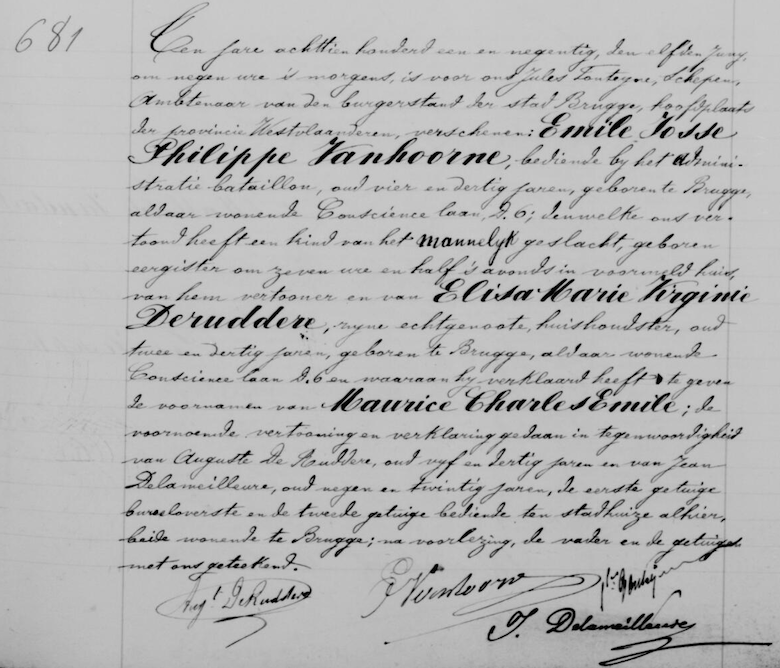 681
Ten jare achttien honderd een en negentig, den elfden Juny,
om negen ure 's morgens, is voor ons Jules Fonteyne, Schepen,
Ambtenaar van den burgerstand der stad Brugge, hoofdplaats
der provincie Westvlaanderen, verschenen: Emile Josse
Philippe Vanhoorne, bediende by het admini-
stratie-bataillon, oud vier en dertig jaren, geboren te Brugge,
aldaar wonende Conscience laan, D.6; denwelke ons ver-
toond heeft een kind van het mannelyk geslacht, geboren
eergister om zeven ure en half 's avonds in voormeld huis,
van hem vertooner en van Elisa Marie Virginie
Deruddere, zyne echtgenoote, huishoudster, oud
twee en dertig jaren, geboren te Brugge, aldaar wonende
Conscience laan D.6 en waaraan hy verklaard heeft te geven
de voornamen van Maurice Charles Emile; de
voornoemde vertooning en verklaring gedaan in tegenwoordigheid
van Auguste De Ruddere, oud vyf en dertig jaren en van Jean
Delameilleure, oud negen en twintig jaren, de eerste getuige
bureeloverste en de tweede getuige bediende ten stadhuize alhier,
beide wonende te Brugge; na voorlezing, de vader en de getuigen
met ons geteekend.
Aug.t DeRuddere E Vanhoorne
J. Delameilleure